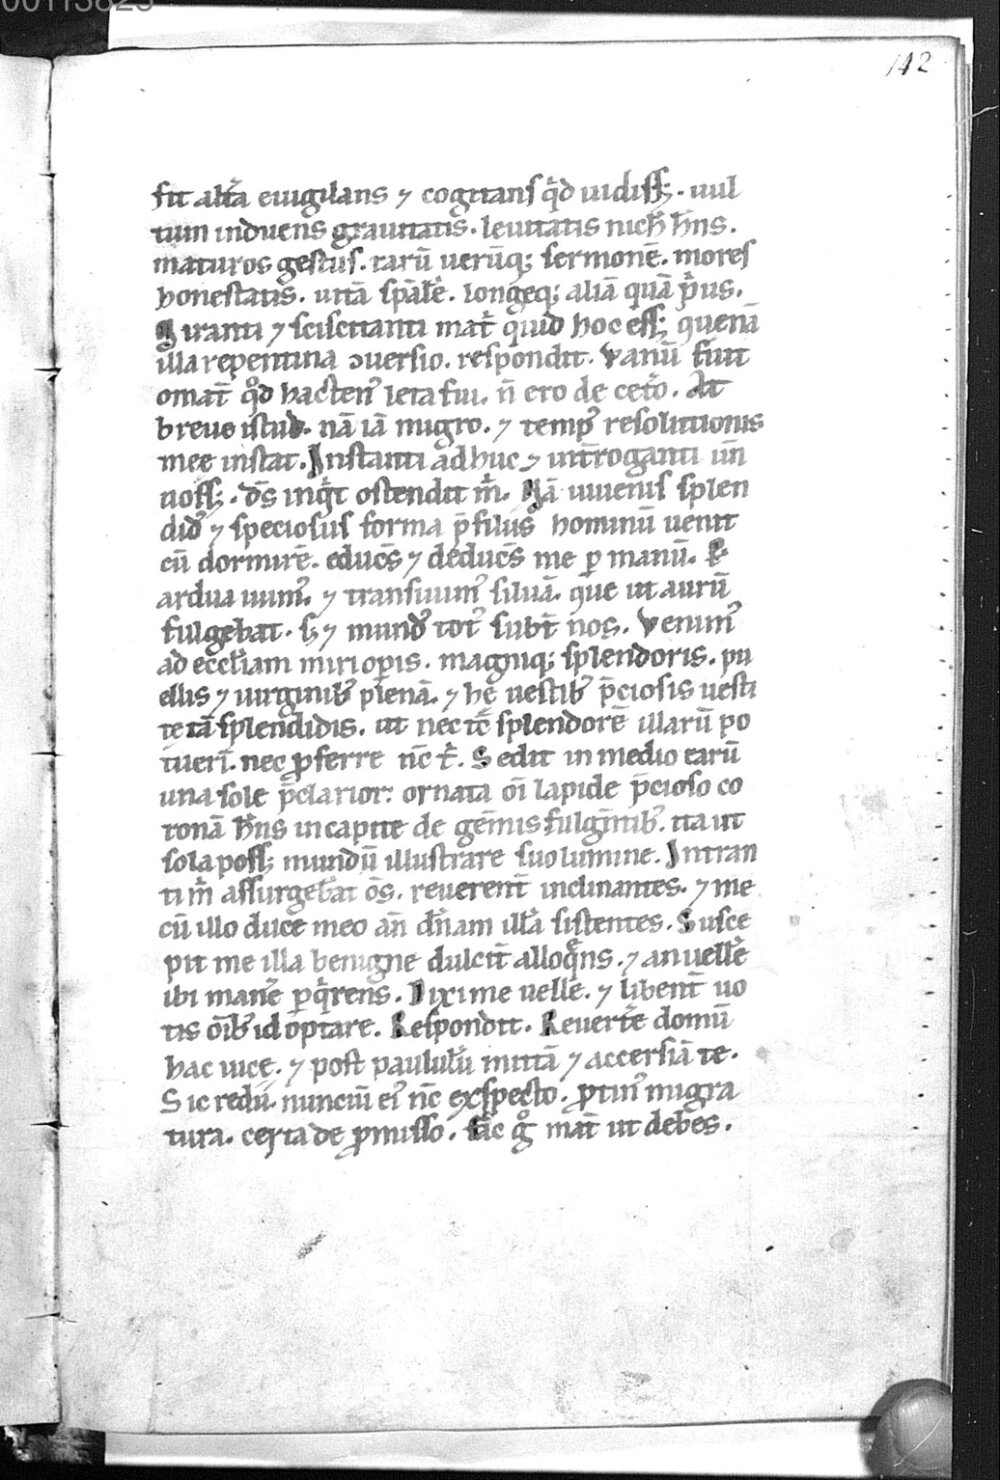 00113823
142
fit alt̃a euigilans ⁊ cogitans qͥd uidiss; . uul
tum induens grauitatis . leuitatis nich̃ h̃ns .
maturos gestus . rarũ uerũq; sermonẽ . mores
honestatis . uitã sp̃alẽ . longeq; aliã quã p̃us .
Miranti ⁊ sciscitanti mat̃ quid hoc ess; quenã
illa repentina ↄuersio . respondit . Vanũ fuit
omat̃ qͦd hacten᾽ leta fui . ñ ero de cet̃o . At
breue istud . nã iã migro . ⁊ temp᾽ resolutionis
mee instat . Instanti adhuc ⁊ int̃roganti un̄
noss; . dñs inqͥt ostendit m̃ . Nã iuuenis splen
did᾽ ⁊ speciosus forma p̃ filiis hominũ uenit
cũ dormirẽ . educẽs ⁊ deducẽs me p manũ . P
ardua iuim᾽ . ⁊ transiuim᾽ siluã . que ut aurũ
fulgebat . s; ⁊ mund᾽ tot᾽ subt̃ nos . Venim᾽
ad eccl̃iam miri opis . magniq; splendoris . pu
ellis ⁊ uirginib᾽ plenã . ⁊ hę uestib᾽ p̃ciosis uesti
te tã splendidis . ut nec tc̃ splendorẽ illarũ po
tueri . nec ꝓferre nc̃ . Sedit in medio earũ
una sole p̃clarior : ornata oĩ lapide p̃cioso co
ronã h̃ns in capite de gem̃is fulgñtib᾽ . ita ut
sola poss; mundũ illustrare suo lumine . Intran
ti m̃ assurgeb̃at om̃s . reuerent̃ inclinantes . ⁊ me
cũ illo duce meo an̄ dñam ill̃a sistentes . Susce
pit me illa benigne dulcit̃ alloq̃ns . ⁊ an uellẽ
ibi manẽ pqͥrens . Dixi me uelle . ⁊ libent̃ uo
tis oĩb᾽ id optare . Respondit . Reuert̃e domũ
hac uice . ⁊ post paululũ mittã ⁊ accersiã te .
Sic redii . nunciũ ei᾽ nc̃ exspecto . ꝓtin᾽ migra
tura . certa de ꝓmisso . fac gͦ mat̃ ut debes .